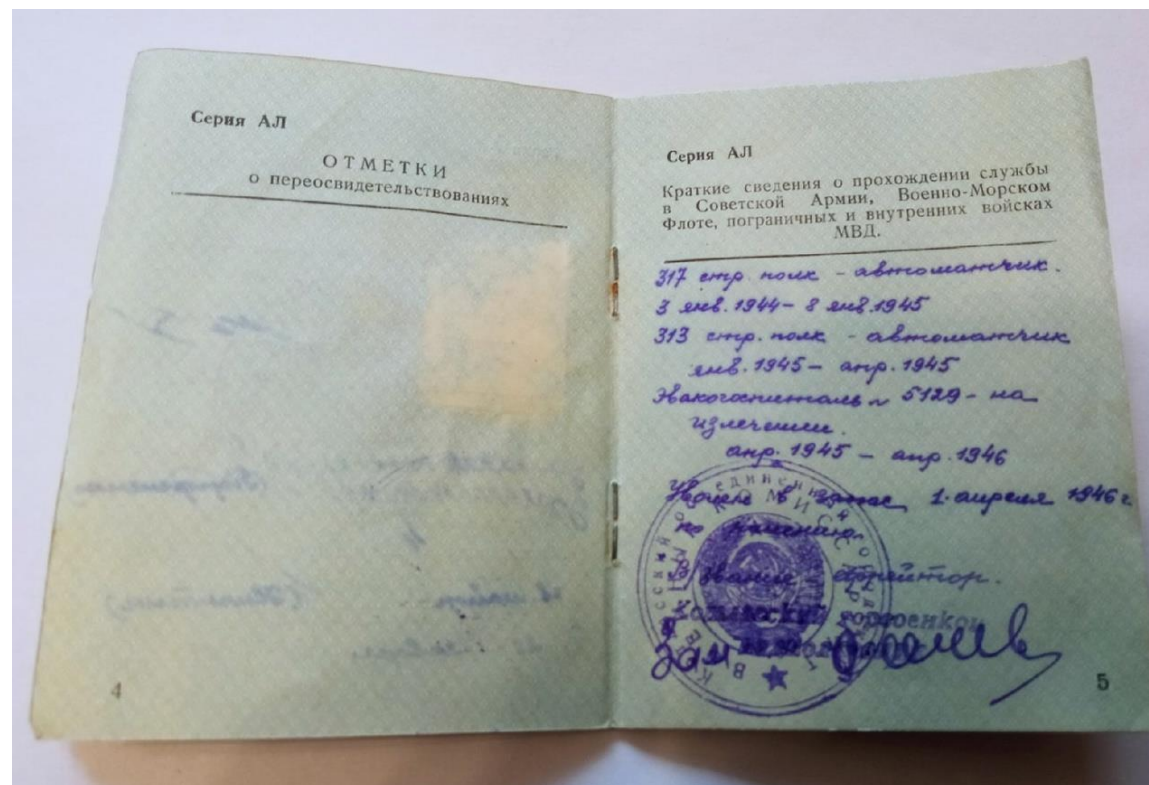 Серия АЛ
ОТМЕТКИ
о переосвидетельствованиях
4
Серия АЛ
Краткие сведения о прохождении службы
в Советской Армии, Военно-Морском
Флоте, пограничных и внутренних войсках
МВД.
317 стр. полк - автоматчик.
3 янв. 1944 - 8 янв. 1945
313 стр. полк - автоматчик
янв. 1945 - апр. 1945
Эвакогоспиталь № 5129 - на
излечении.
апр. 1945 - апр. 1946
Уволен в запас 1 апреля 1946 г.
по ранению.
звание - ефрейтор.
Зам
5